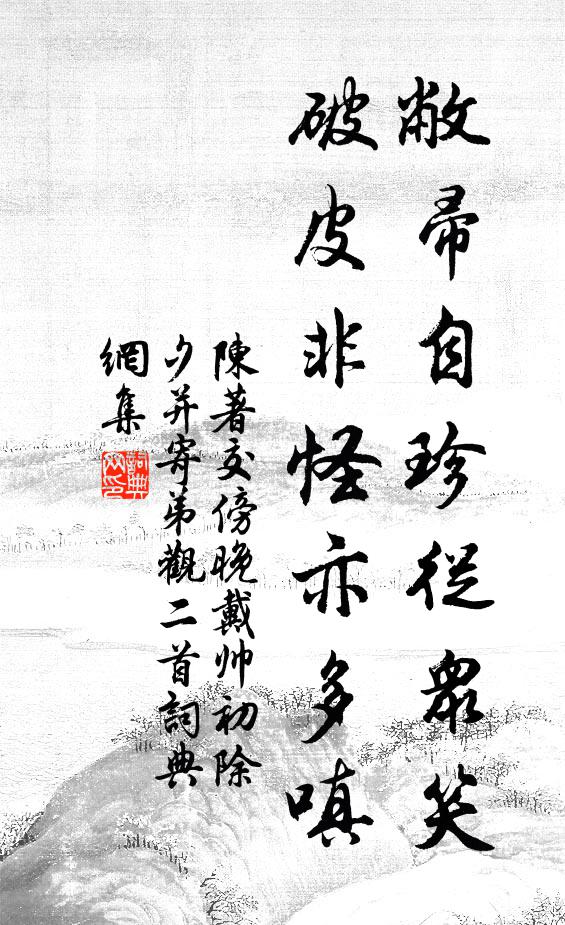 敝帚自珍從眾笑
破皮非怪亦多嗔
陳著交傍晚戴帅初除
夕并寄弟觀二首詞典
網集
詞典
网印